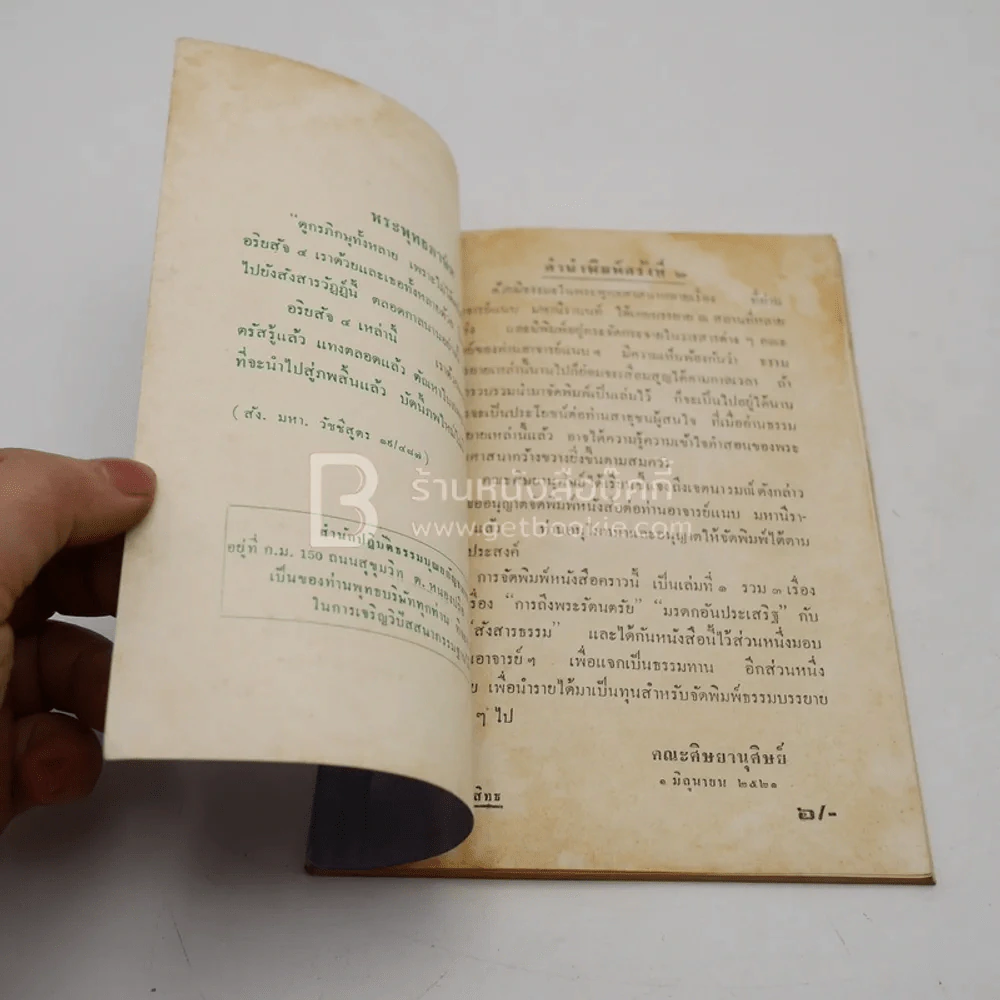 พระพุทธภาษิต
"ดูกรภิกษุทั้งหลาย เพราะไม่
อริยสัจ ๔ เราด้วยและเธอทั้งหลายด้วย
ไปยังสังสารวัฏฏ์นี้ ตลอดกาลนานอย่างนี้
อริยสัจ ๔ เหล่านี้
ตรัสรู้แล้ว แทงตลอดแล้ว ตัณหาใน
ที่จะนำไปสู่ภพสิ้นแล้ว บัดนี้ภพใหม่
( สัง. มหา. วัชชีสูตร
สำนักปฏิบัติธรรมบุณย
อยู่ที่ ก.ม. 150 ถนนสุขุมวิท ต. หนอง
เป็นของท่านพุทธบริษัททุกท่าน
ในการเจริญวิปัสสนากรรมฐาน
คำนำพิมพ์ครั้งที่ ๒
ในพระพุทธศาสนาหลายเรื่อง ที่ท่าน
อาจารย์แนบ มหานีรานนท์ ได้เคยบรรยาย ณ สถานที่หลาย
และมีพิมพ์อยู่กระจัดกระจายในวารสารต่าง ๆ
ของท่านอาจารย์แนบ ฯ มีความเห็นพ้องกันว่า ธรรม
ยายเหล่านั้นนานไปก็ย่อมจะเสื่อมสูญได้ตามกาลเวลา ถ้า
รวบรวมนำมาจัดพิมพ์เป็นเล่มไว้ ก็จะเป็นไปอยู่ได้นาน
จะเป็นประโยชน์ต่อท่านสาธุชนผู้สนใจ ที่เมื่ออ่านธรรม
ยายเหล่านี้แล้ว อาจได้ความรู้ความเข้าใจคำสอนของพระ
ศาสนากว้างขวางยิ่งขึ้นตามสมควร
คณะศิษยานุศิษย์ได้เรียนชี้แจงถึงเจตนารมณ์ดังกล่าว
ขออนุญาตจัดพิมพ์หนังสือต่อท่านอาจารย์แนบ มหานีรา-
แล้ว ท่านอนุญาตให้จัดพิมพ์ได้ตาม
ประสงค์
การจัดพิมพ์หนังสือคราวนี้ เป็นเล่มที่ ๑ รวม ๓ เรื่อง
เรื่อง "การถึงพระรัตนตรัย" "มรดกอันประเสริฐ" กับ
"สังสารธรรม" และได้กันหนังสือนี้ไว้ส่วนหนึ่งมอบ
นอาจารย์ ฯ เพื่อแจกเป็นธรรมทาน อีกส่วนหนึ่ง
ย เพื่อนำรายได้มาเป็นทุนสำหรับจัดพิมพ์ธรรมบรรยาย
ๆ ไป
คณะศิษยานุศิษย์
๑ มิถุนายน ๒๕๒๑
สิทธิ
๖/-
B ร้านหนังสือบุ๊คกี้
www.getbookie.com